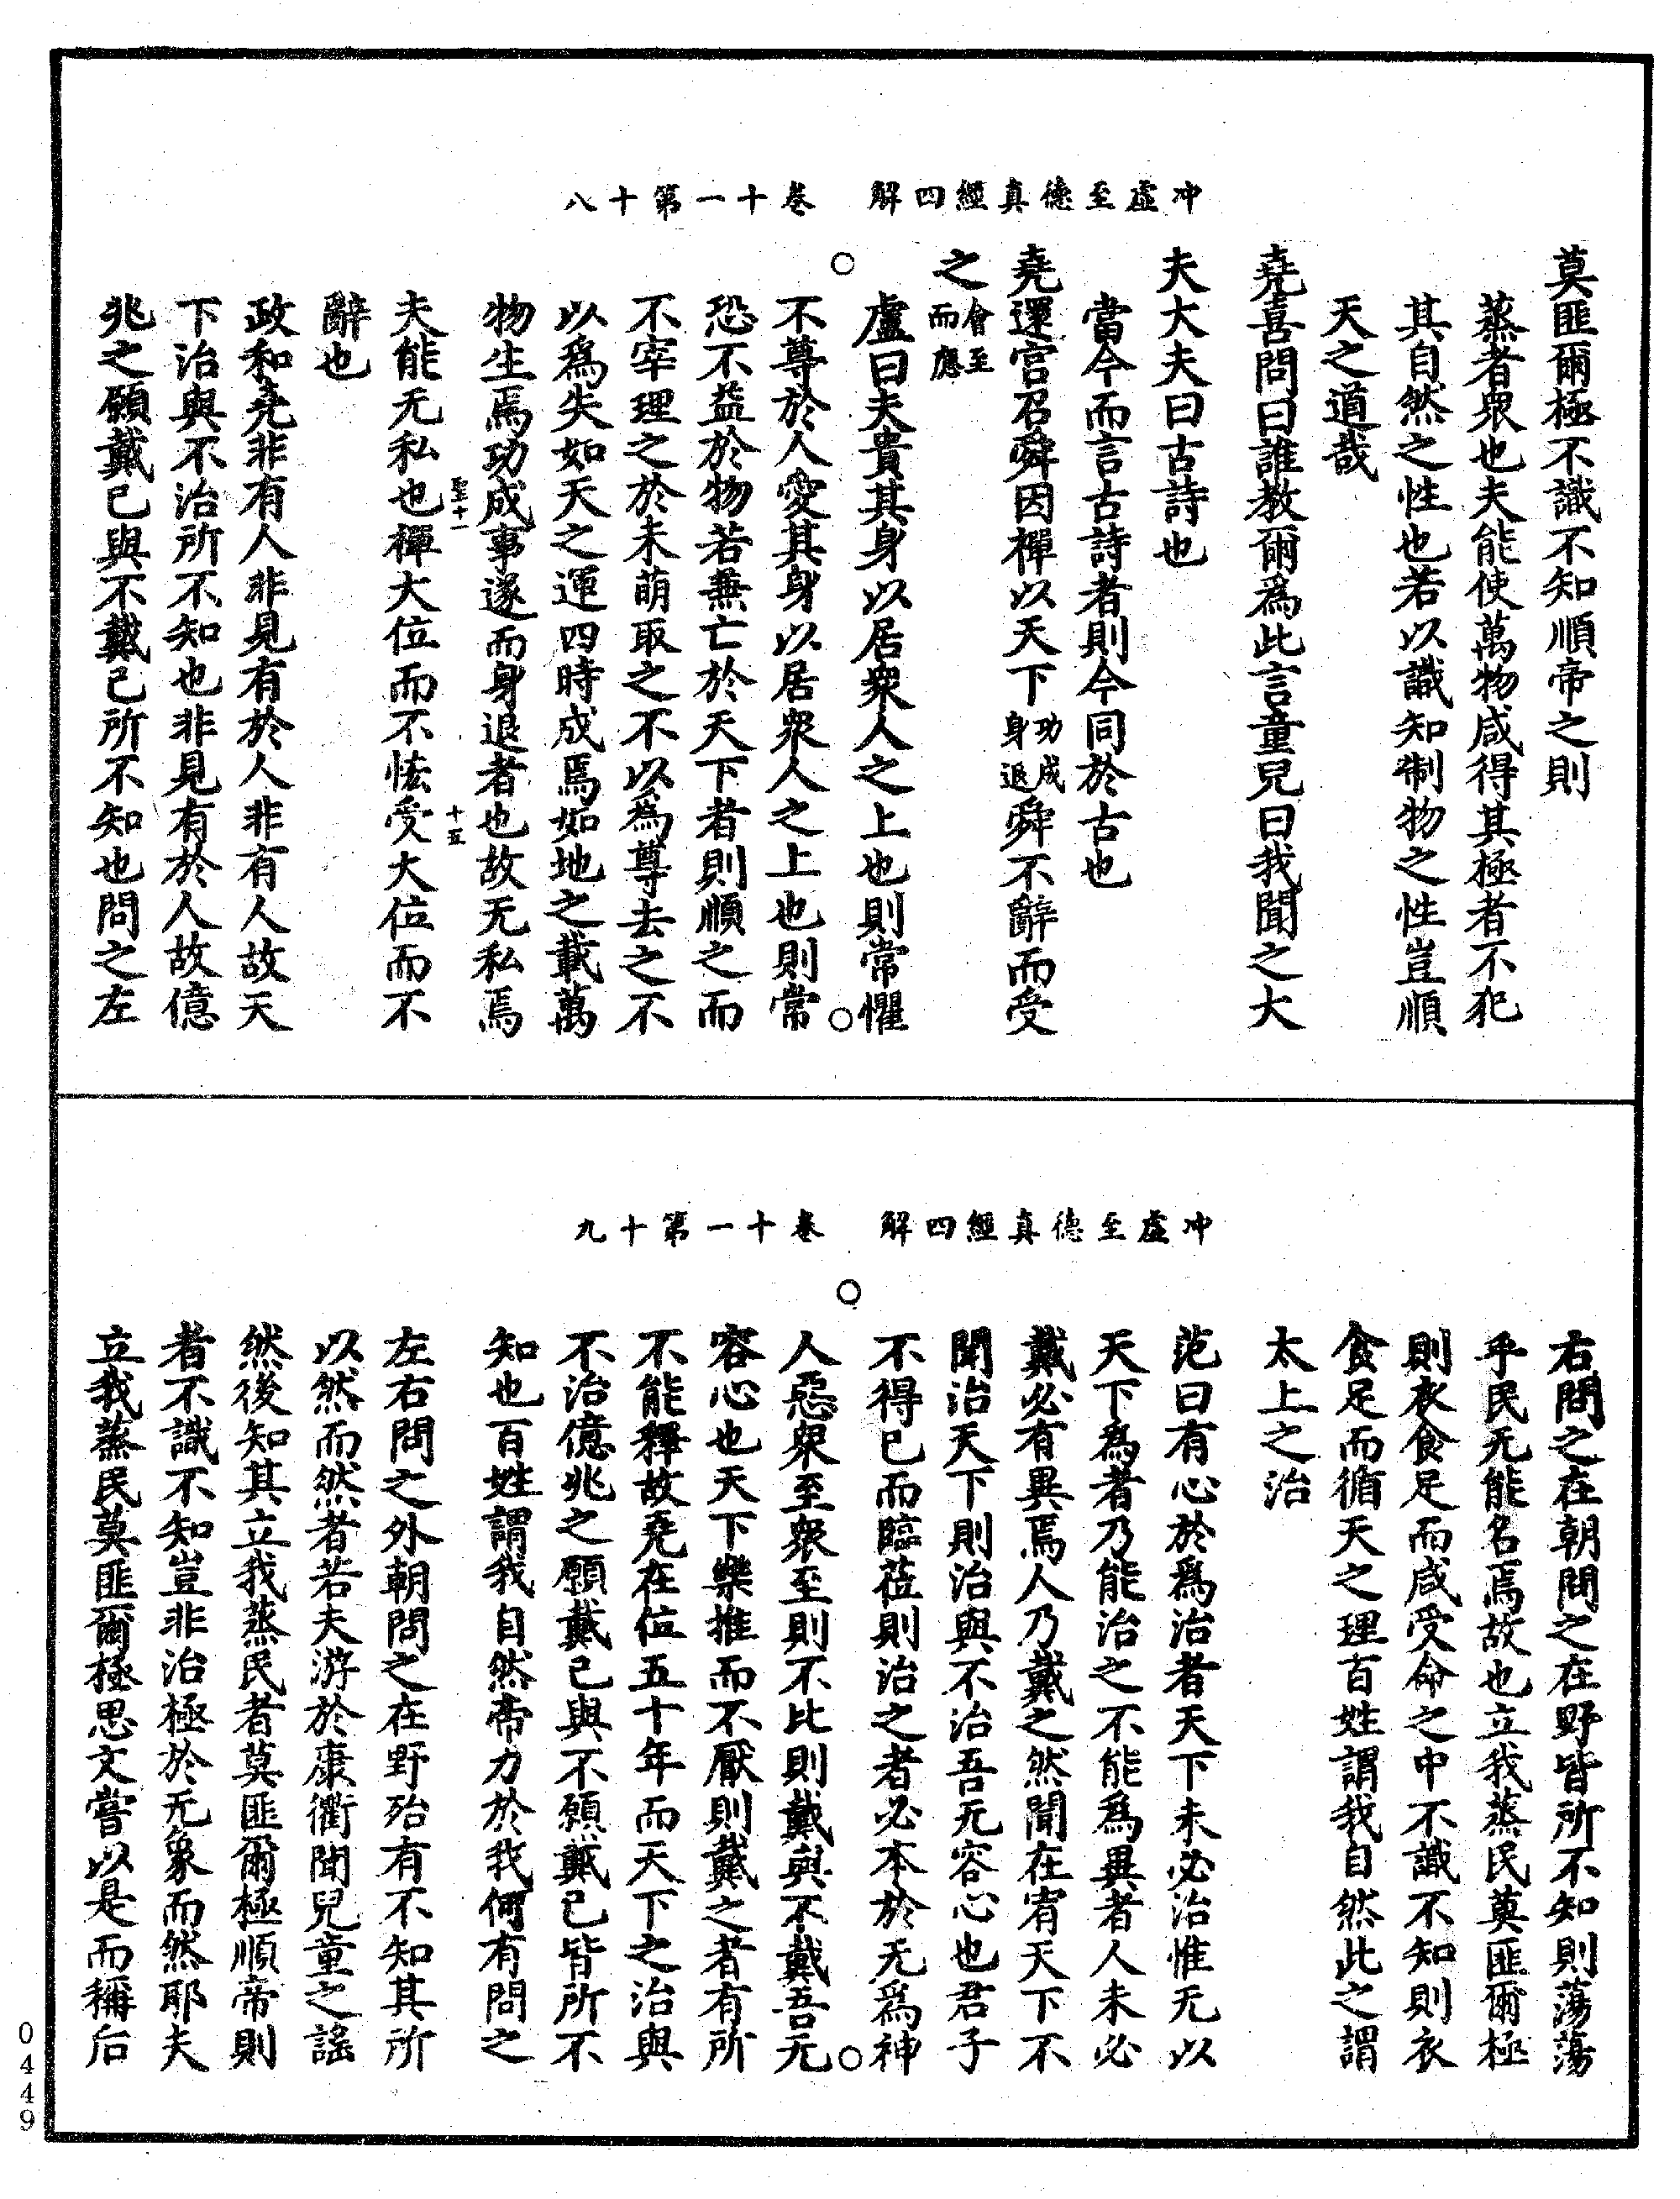 冲虛至德真經四解　卷十一第十八
莫匪爾極不識不知順帝之則
蒸者衆也夫能使萬物咸得其極者不犯
其自然之性也若以識知制物之性豈順
天之道哉
堯喜問曰誰教爾爲此言童兒曰我聞之大
夫大夫曰古詩也
當今而言古詩者則今同於古也
堯還宮召舜因禪以天下功成身退舜不辭而受
之會至而應
盧曰夫貴其身以居衆人之上也則常懼
不尊於人愛其身以居衆人之上也則常
恐不益於物若兼亡於天下者則順之而
不宰理之於未萌取之不以為尊去之不
以爲失如天之運四時成焉如地之載萬
物生焉功成事遂而身退者也故无私焉
聖十一　十五
夫能无私也禪大位而不恡受大位而不
辭也
政和堯非有人非見有於人非有人故天
下治與不治所不知也非見有於人故億
兆之願戴已與不戴已所不知也問之左
冲虛至德真經四解　卷十一第十九
右問之在朝問之在野皆所不知則蕩蕩
乎民无能名焉故也立我蒸民莫匪爾極
則衣食足而咸受命之中不識不知則衣
食足而循天之理百姓謂我自然此之謂
太上之治
范曰有心於爲治者天下未必治惟无以
天下為者乃能治之不能爲異者人未必
戴必有異焉人乃戴之然聞在宥天下不
聞治天下則治與不治吾无容心也君子
不得已而臨莅則治之者必本於无爲神
人惡衆至衆至則不比則戴與不戴吾无
容心也天下樂推而不厭則戴之者有所
不能釋故堯在位五十年而天下之治與
不治億兆之願戴已與不願戴已皆所不
知也百姓謂我自然帝力於我何有問之
左右問之外朝問之在野殆有不知其所
以然而然者若夫游於康衢聞兒童之謠
然後知其立我蒸民者莫匪爾極順帝則
者不識不知豈非治極於无象而然耶夫
立我蒸民莫匪爾極思文嘗以是而稱后
0449